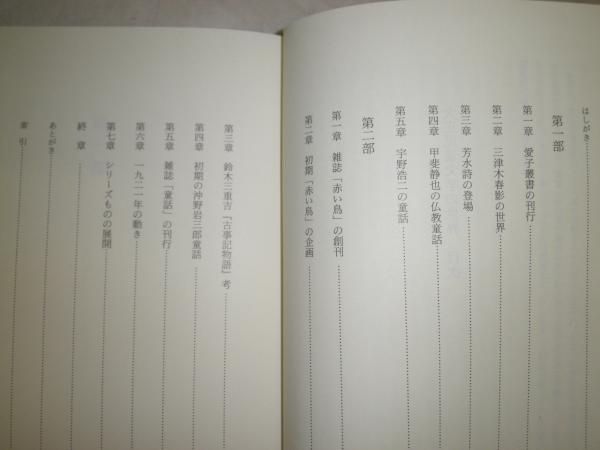 はしがき
第一部
第一章 愛子叢書の刊行
第二章 三津木春影の世界
第三章 芳水詩の登場
第四章 甲斐静也の仏教童話
第五章 宇野浩二の童話
第二部
第一章 雑誌「赤い鳥」の創刊
第二章 初期「赤い鳥」の企画
第三章 鈴木三重吉『古事記物語』考
第四章 初期の沖野岩三郎童話
第五章 雑誌「童話」の刊行
第六章 一九二一年の動き
第七章 シリーズものの展開
終章
あとがき
索引